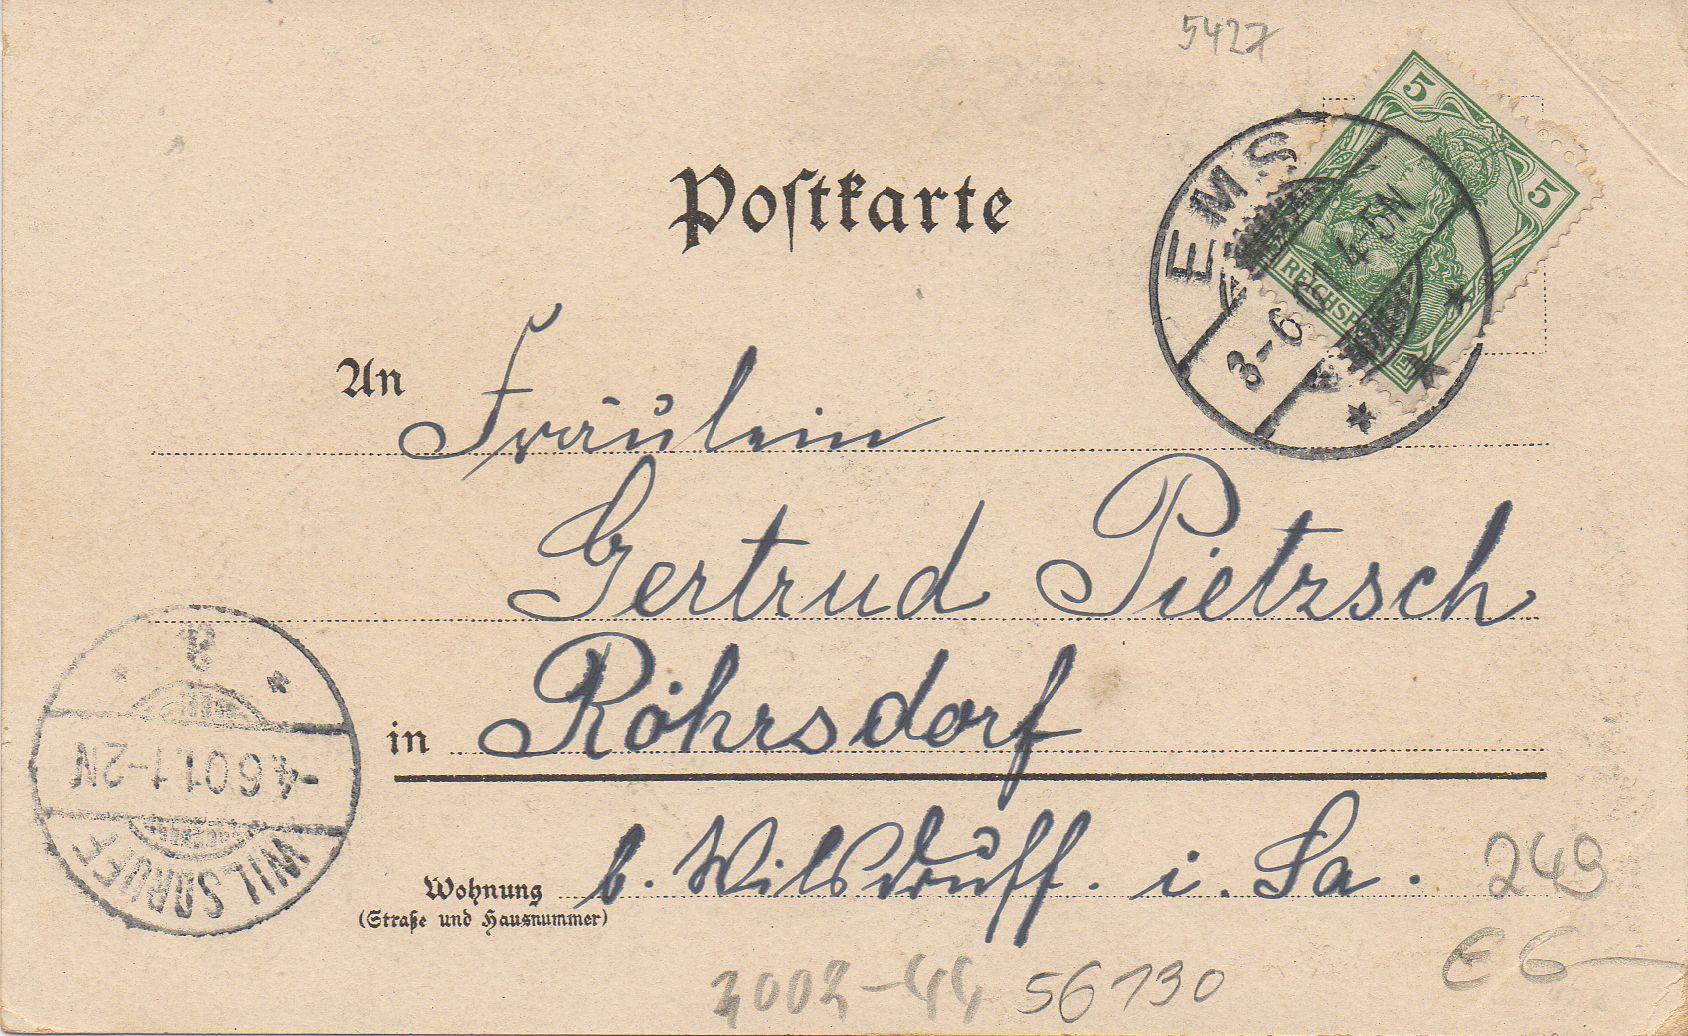 5427
Postkarte
5
5
REICHSP
EMS
3-6 01 4-5N
An Fräulein
Gertrud Pietzsch
in Röhrsdorf
b. Wilsdruff. i. Sa.
Wohnung
(Straße und Hausnummer)
a
-4.6.01.1-2N
WILSDRUFF
249
56130
€ 6